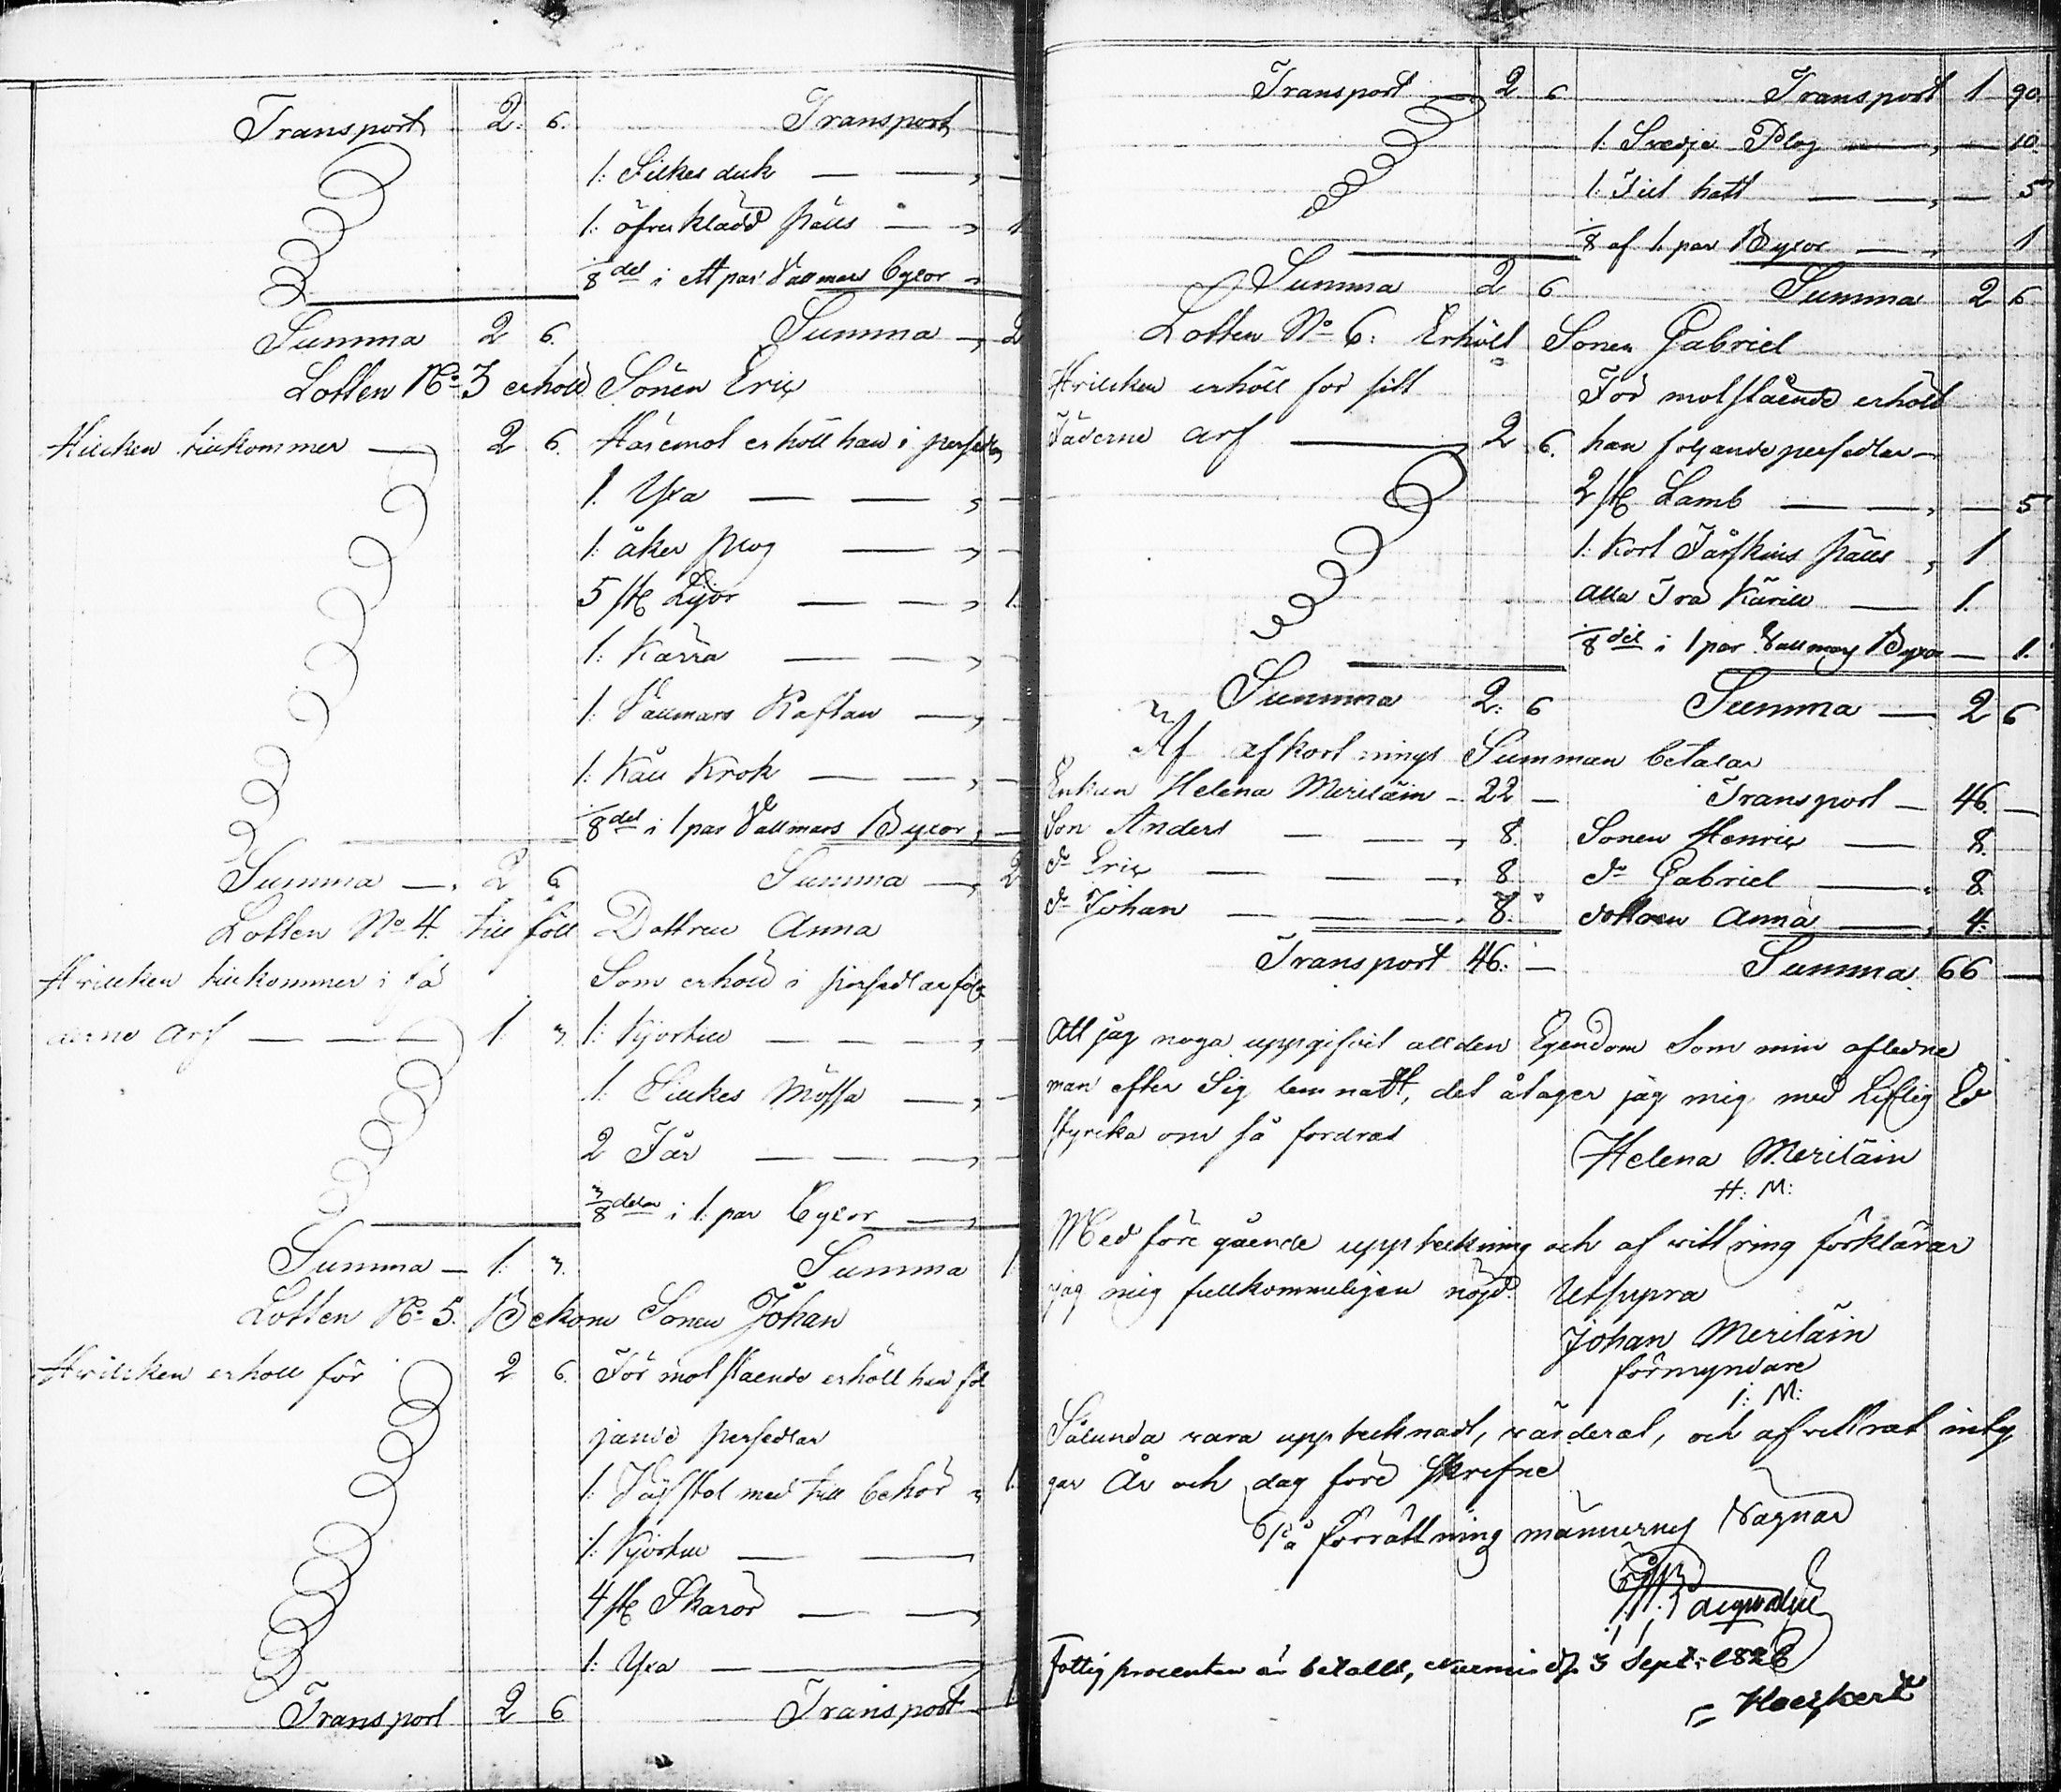 Transport 2. 6. Transport
1: Silkes duk
1: öfverklädd Päls 1
1/8 del i ett par Vallmars Byxor
Summa 2 6. Summa 2
Lotten No 3 erhöll Sonen Eric
tillkommer 2 6. Häremot erhöll han i persedl
1. Yxa
1: åker plog
5 st Lijor 1.
1: Kärra
1: Vallmars Kaftan
1: Kåll Krok
1/8 del i 1 par Vallmars Byxor,
Summa 2 6. Summa 2
Lotten No 4. till föll Dottren Anna
Hvilcken tillkommer i fä Som erhöll i persedlar föl
derne Arf 1. 3. 1: Kjortill
1. Silkes Mössa
2 Får
3/8 delar i 1. par Byxor
Summa 1. 3. Summa 1
Lotten No 5. Bekom Sonen Johan
Hvilcken erhöll för 2 6. För motstående erhöll han föl
jande persedlar
1. Väfstol med till behör 1.
1: Kjortill
4 st Skäror
1: Yxa
Transport 2 6 Transport 1
Transport 2 6 Transport 1 90.
1: Svedje Plog 10.
1: Filt hatt 5
1/8 af 1. par Byxor 1
Summa 2 6 Summa 2 6
Lotten No 6: Erhölt Sonen Gabriel
Hvilcken erhöll för sitt För motstående erhölt
Fäderne Arf 2 6. han foljande persedlar
2 st Lamb 5
1: Kort Fårskins Päls 1
Alla Trä Kärill 1.
1/8 del i 1 par Vallmars Byxor 1.
Summa 2: 6 Summa 2 6
Af afkortnings Summan betalar
Enkan Helena Meriläin 22 Transport 46.
Son Anders 8. Sonen Henric 8.
do Eric 8. do Gabriel 8.
do Johan 8. dottren Anna 4.
Transport 46. Summa 66
Att jag noga uppgifvit all den Egendom Som min aflidne
man efter Sig lemnatt, det åtager jag mig med Liflig Ed
styrcka om så fordras
Helena Meriläin
H: M:
Med före gående uppteckning och af vittring förklärar
jag mig fullkommeligen nöjd. Utsupra
Johan Meriläin
förmyndare
J: M:
Sålunda vara upptecknadt, värderat, och afvittrat inty
gar År och dag före skrefne
På förrättning männernes Vägnar
Fattigprocenten är betallt, Nurmis d. 3 Sept: 1828